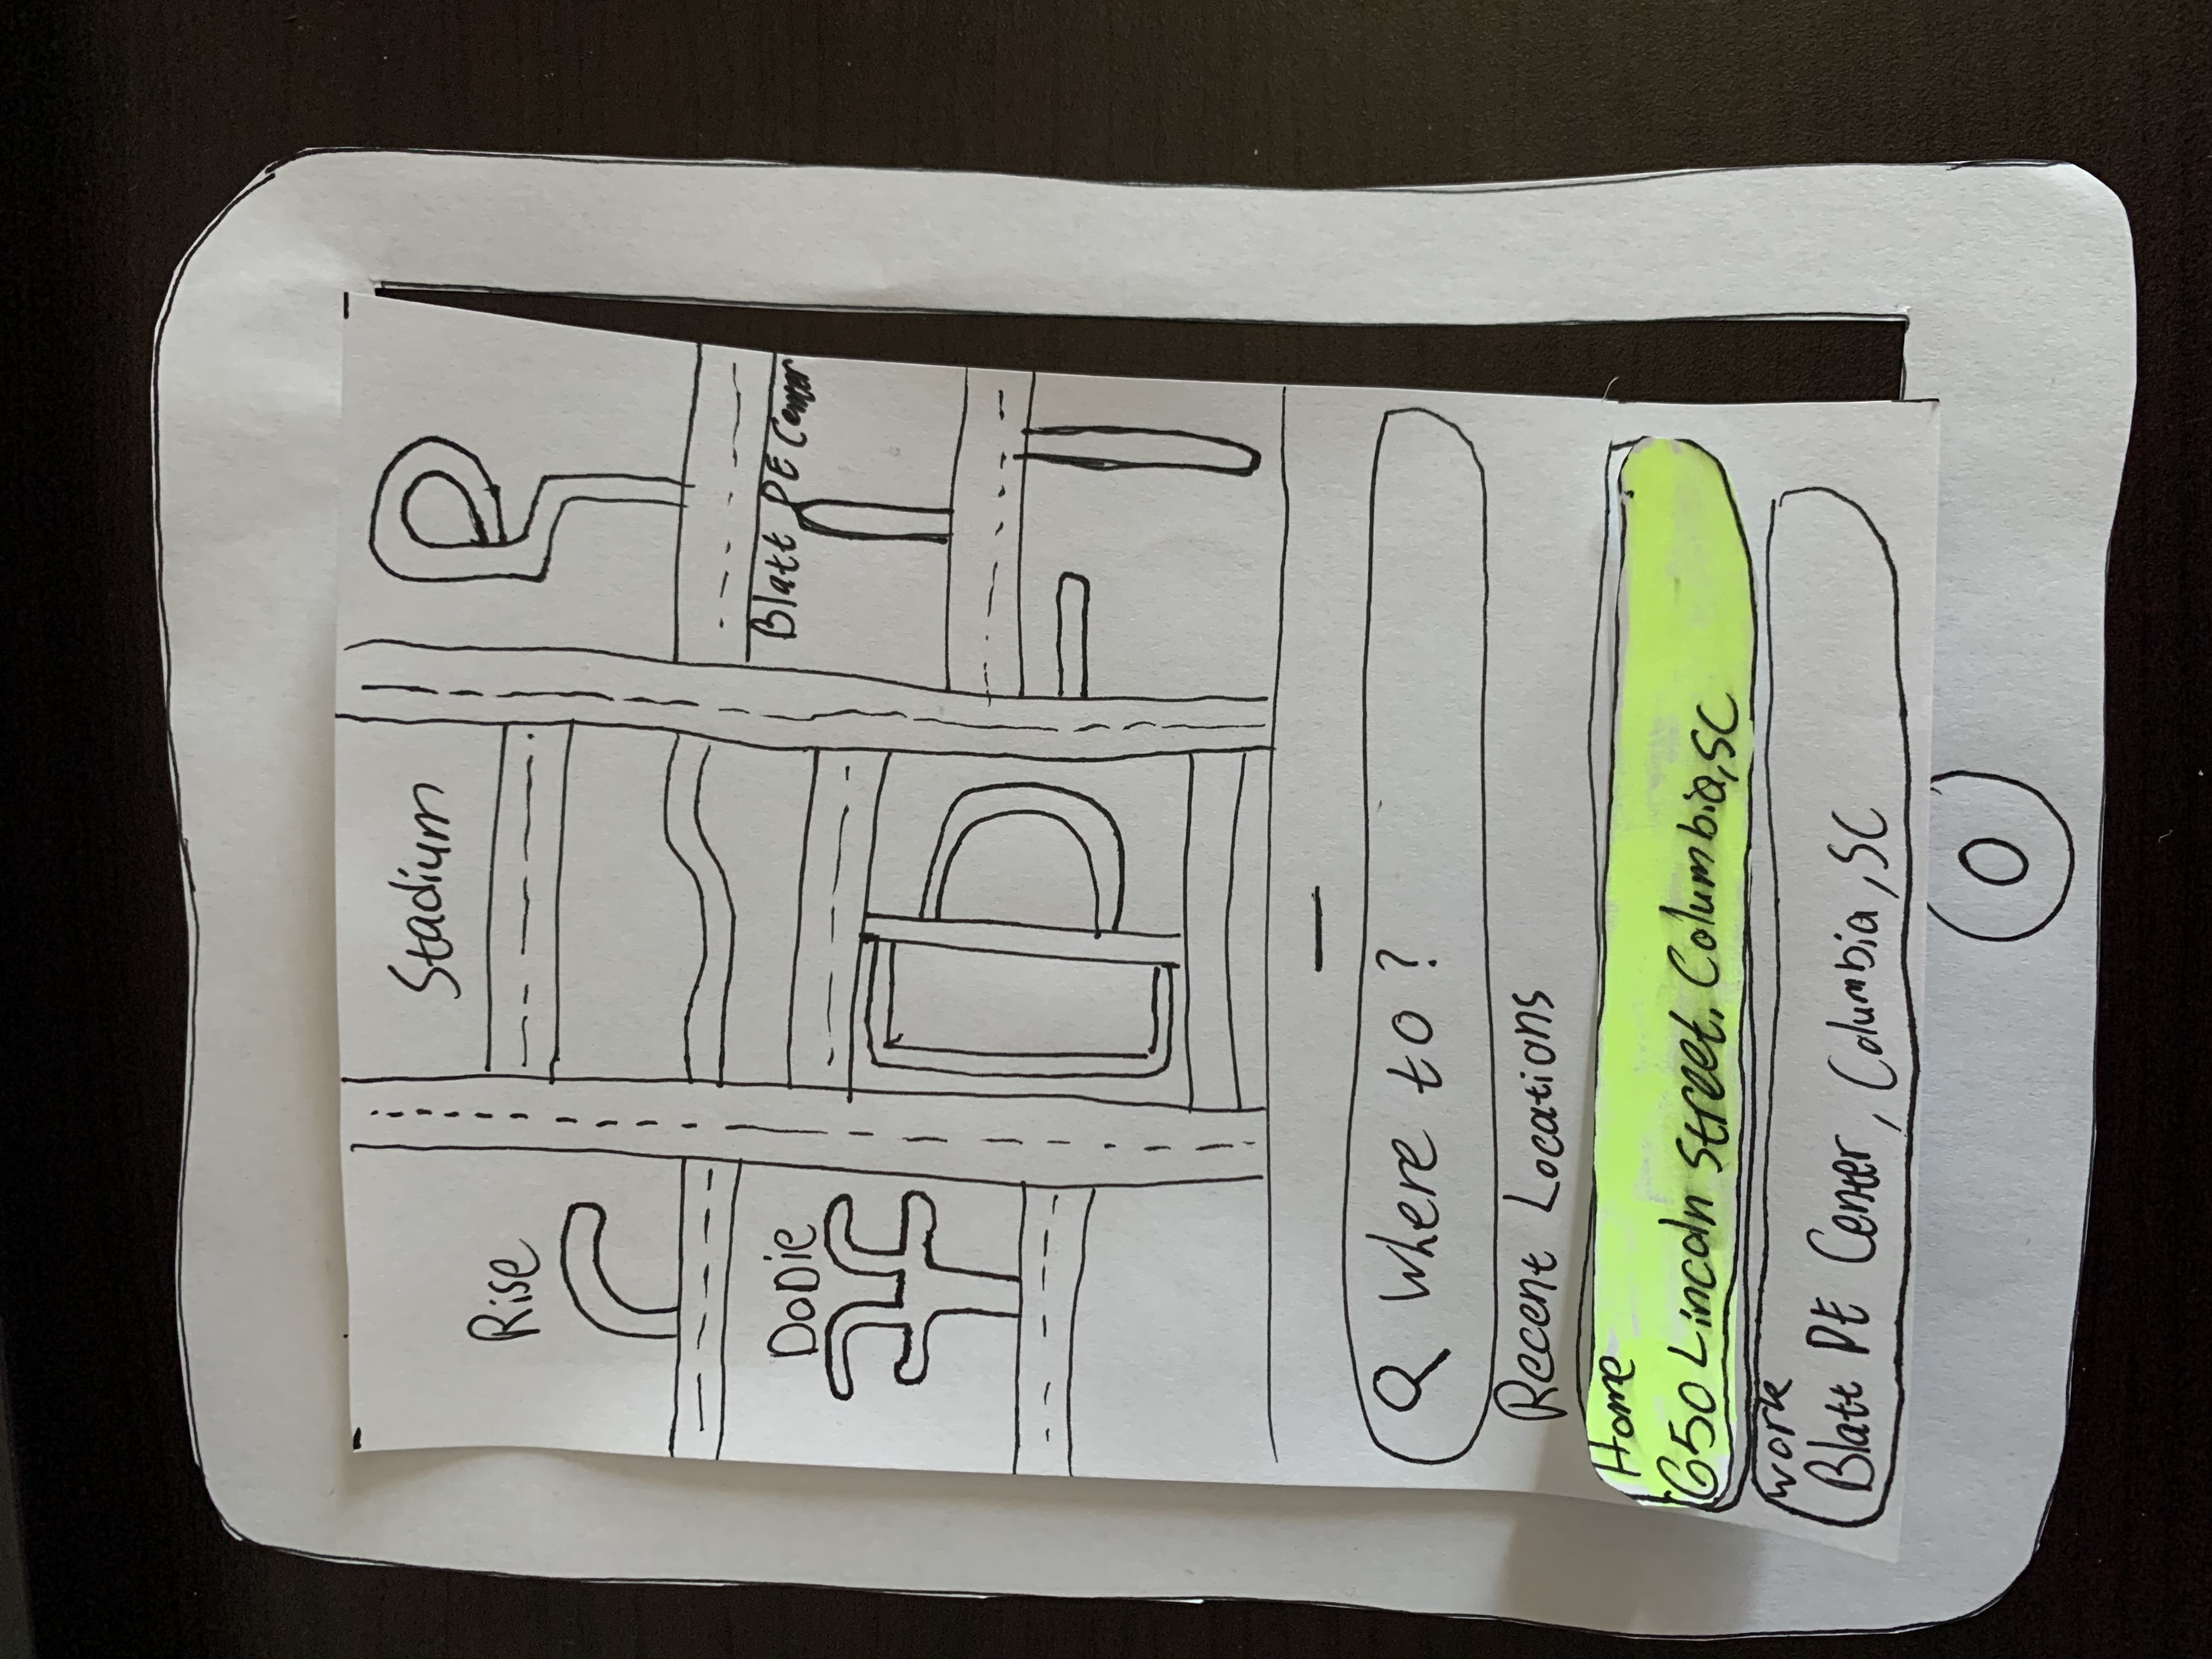 Rise
Stadium
Dobie
Blatt PE Center
Where to?
Recent Locations
Home
650 Lincoln Street, Columbia, SC
Work
Blatt PE Center, Columbia, SC